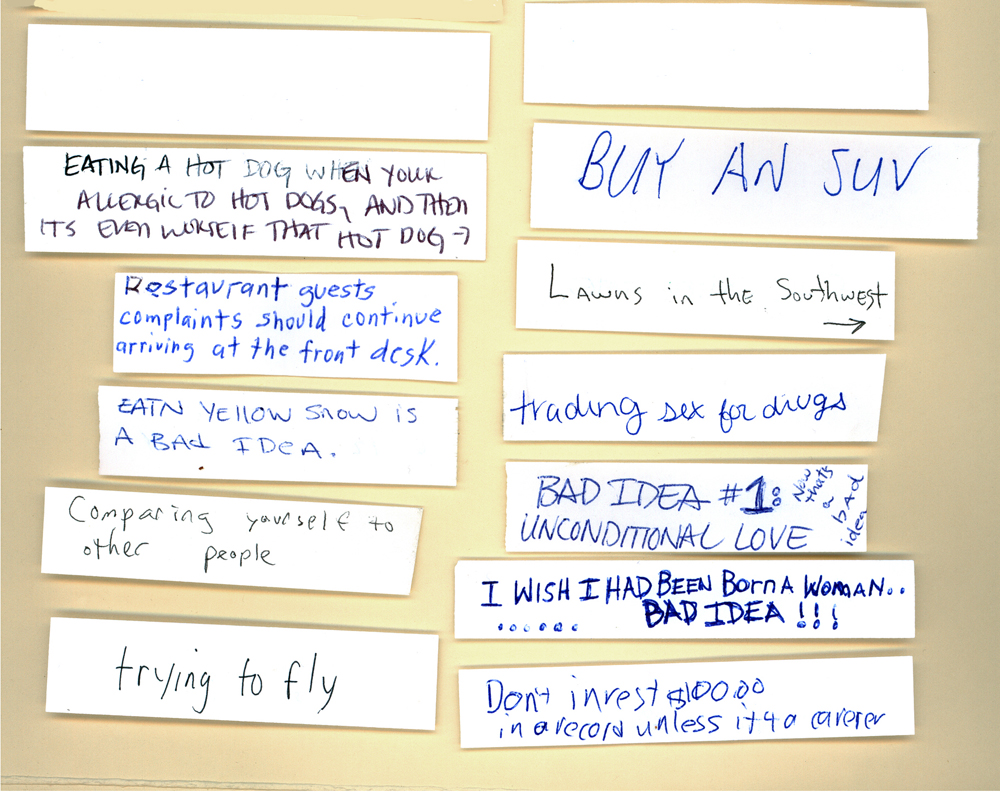 EATING A HOT DOG WHEN YOUR
ALLERGIC TO HOT DOGS, AND THEN
ITS EVEN WORSE IF THAT HOT DOG →
Restaurant guests
complaints should continue
arriving at the front desk.
EATN YELLOW SNOW IS
A BAd IDeA.
Comparing yourself to
other people
trying to fly
BUY AN SUV
LAWNS in the Southwest
→
trading sex for drugs
BAD IDEA #1:
UNCONDITIONAL LOVE
Now
that's
a
bAd
idea
I WISH I HAD BEEN BORN A WOMAN..
...... BAD IDEA !!!
Don't invest $100.00
in a record unless it 4 a carerer